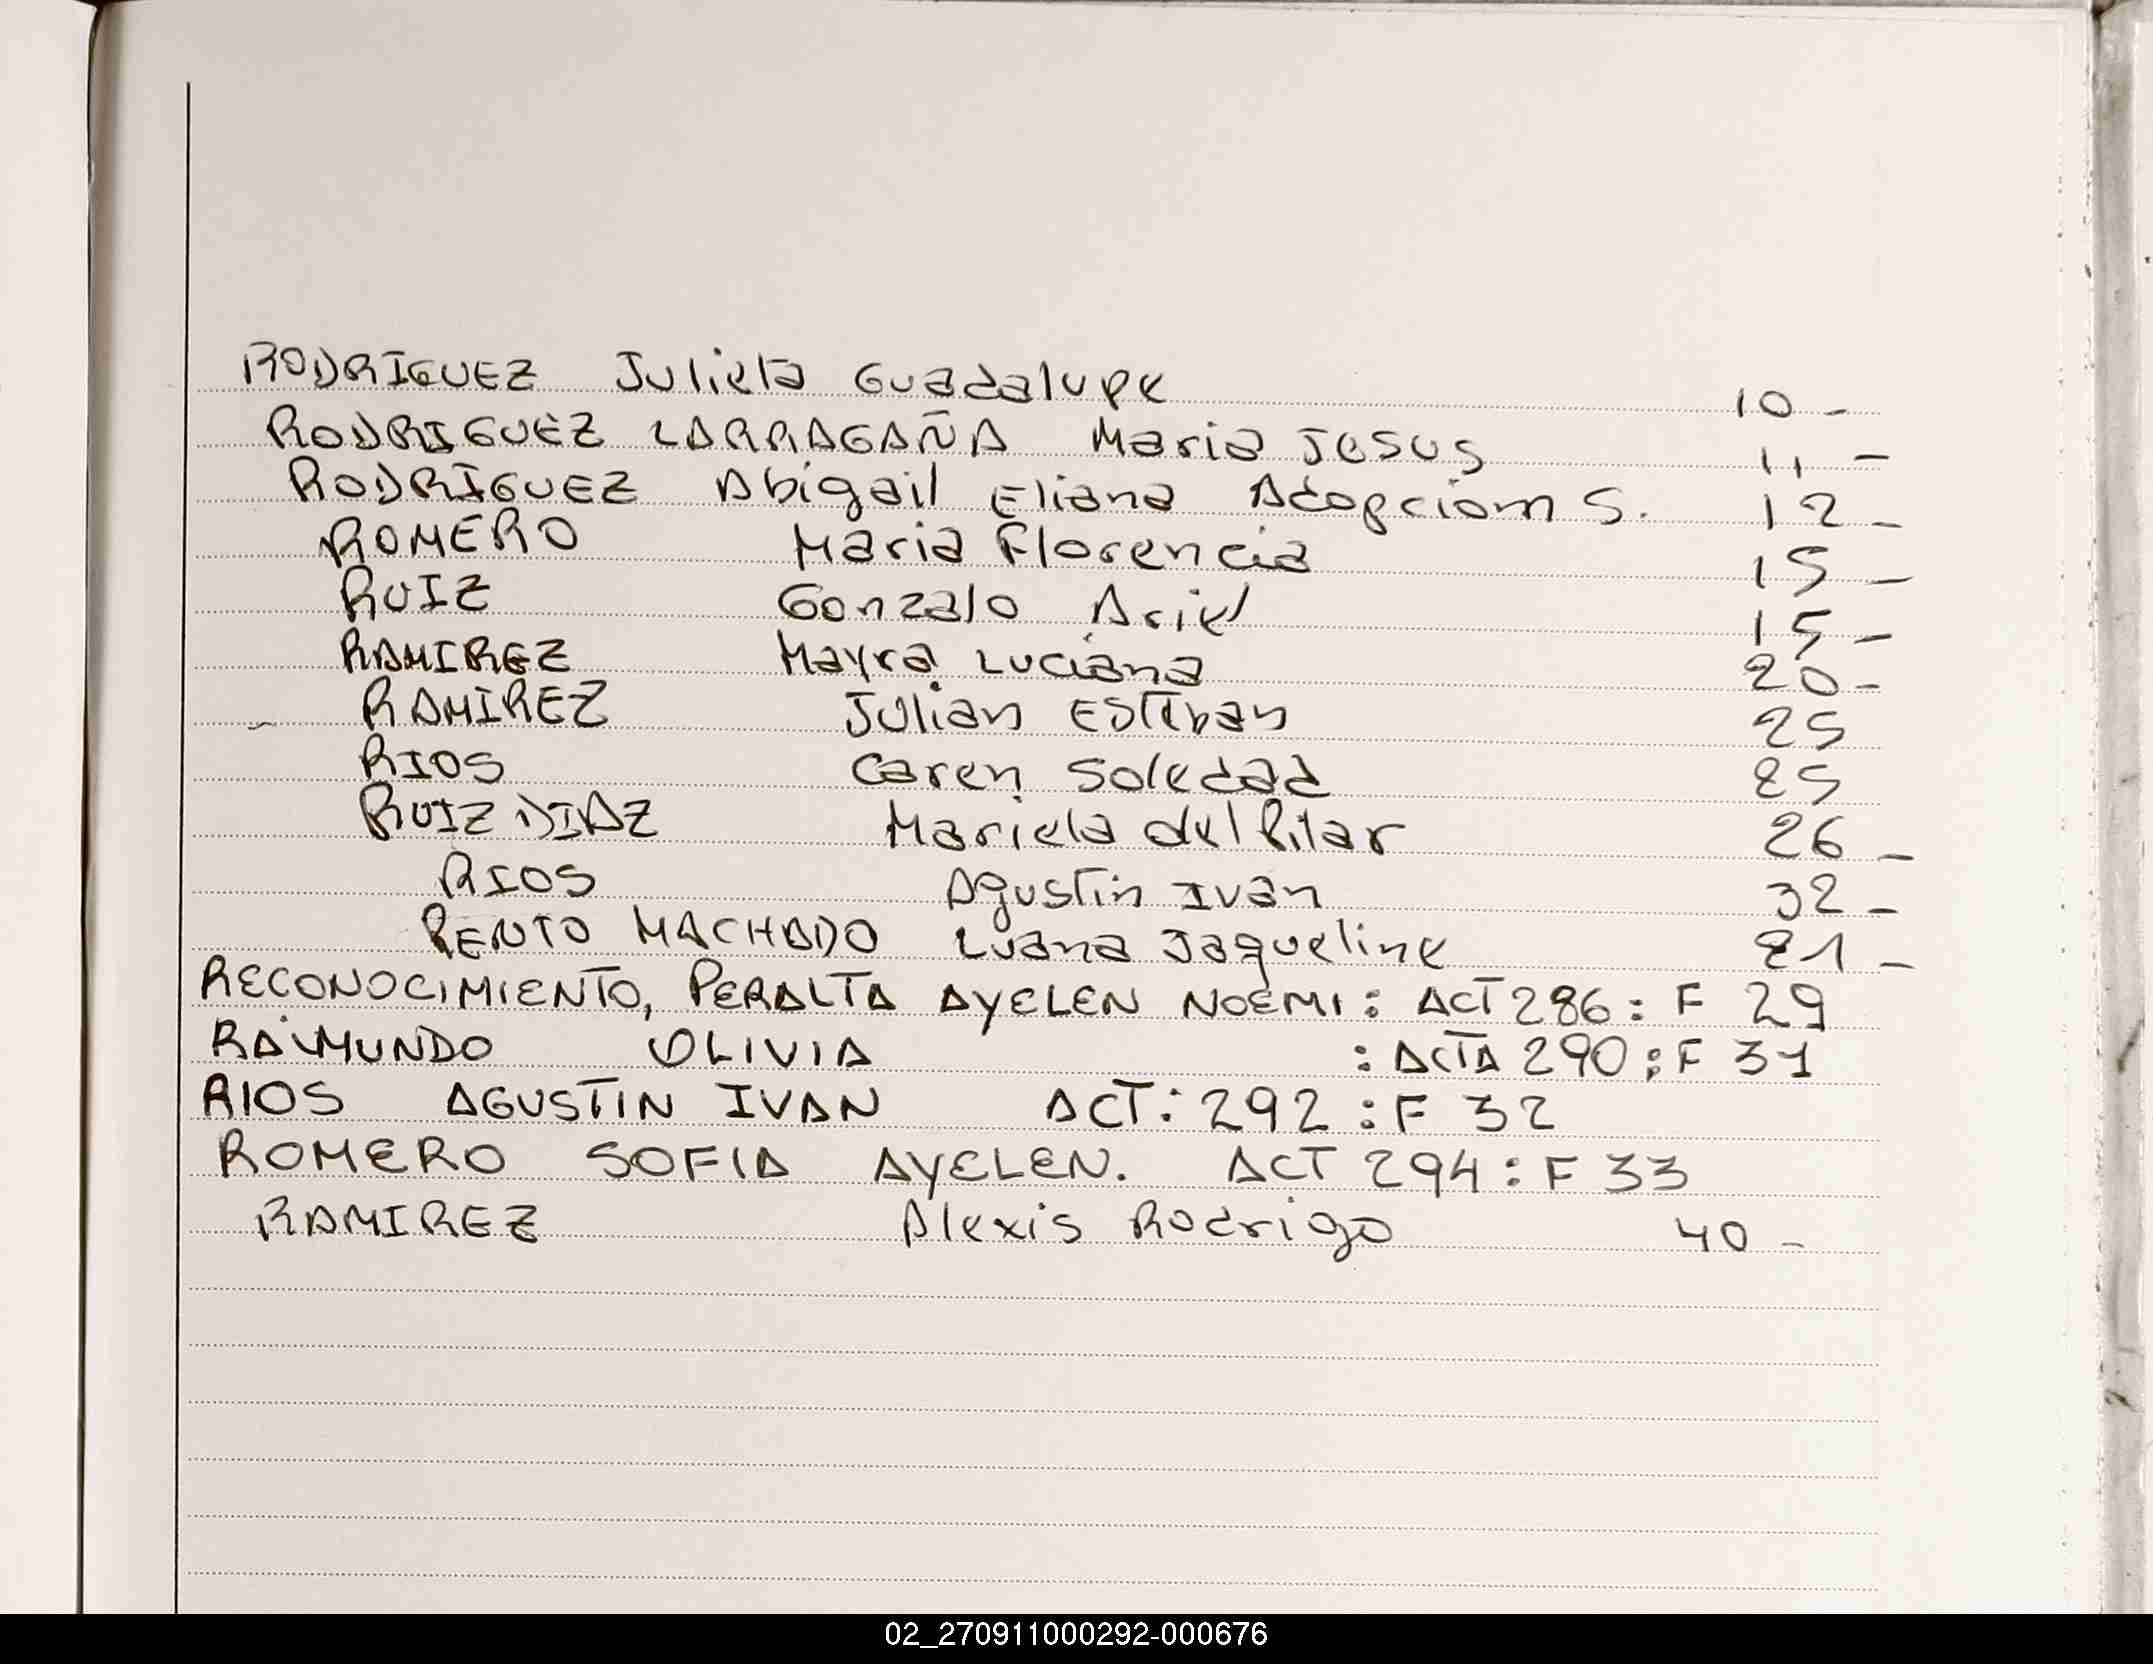 RODRIGUEZ Julieta Guadalupe 10 -
RODRIGUEZ LARRAGAÑA Maria Jesus 11 -
RODRIGUEZ Abigail Eliana Adopciom S. 12 -
ROMERO Maria Florencia 15 -
RUIZ Gonzalo Ariel 15 -
RAMIREZ Mayra Luciana 20 -
- RAMIREZ Julian Esteban 25
RIOS Caren Soledad 25
RUIZ DIAZ Mariela del Pilar 26 -
RIOS Agustin Ivan 32 -
RENTO MACHADO Luana Jaqueline 21 -
RECONOCIMIENTO, PERALTA AYELEN NOEMI: ACT 286: F 29
RAIMUNDO OLIVIA : ACTA 290: F 31
RIOS AGUSTIN IVAN ACT: 292: F 32
ROMERO SOFIA AYELEN. ACT 294: F 33
RAMIREZ Alexis Rodrigo 40 -
02_270911000292-000676